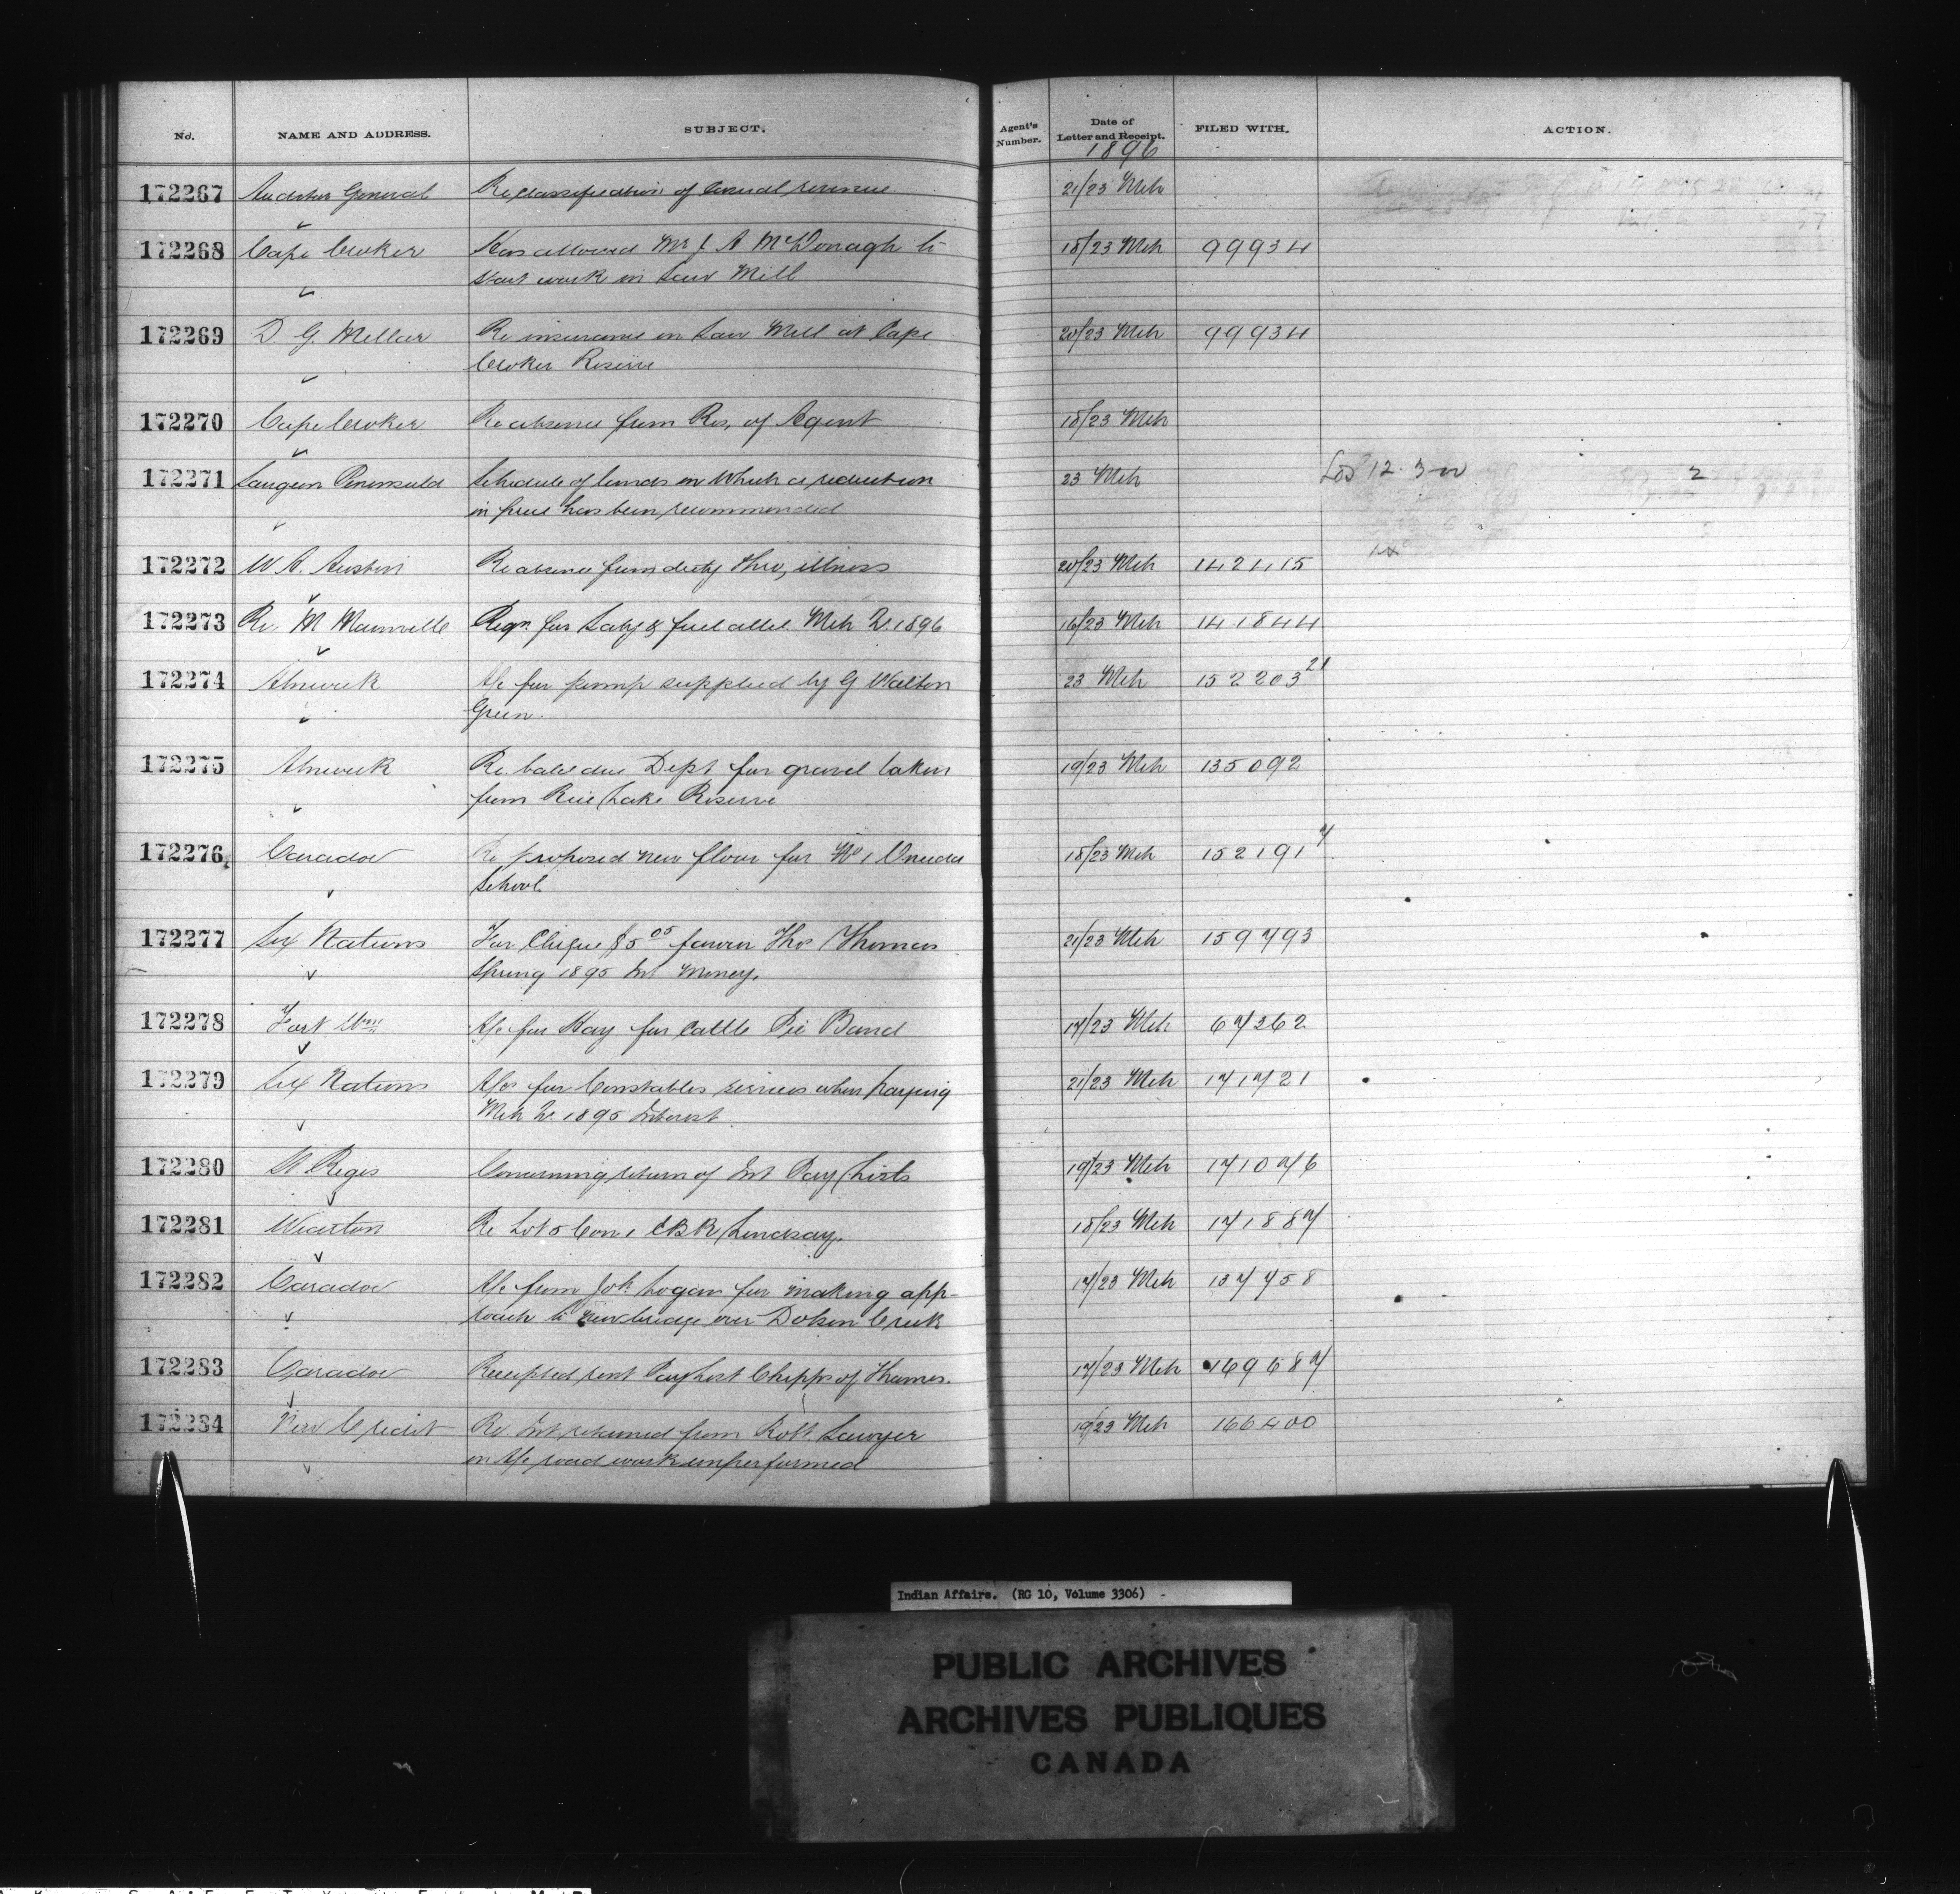 No. NAME AND ADDRESS. SUBJECT. Agent's Number. Date of Letter and Receipt. FILED WITH. ACTION.
1896
172267 Auditor General Re classification of Casual revenue 21/23 Mch
172268 Cape Croker Has allowed Mr J. A McDonagh to 18/23 Mch 99934
start work in Saw Mill
172269 D. G. Millar Re insurance on Saw Mill at Cape 20/23 Mch 99934
Croker Reserve
172270 Cape Croker Re absence from Res, of Agent 18/23 Mch
172271 Saugeen Peninsula Schedule of lands on which a reduction 23 Mch
in price has been recommended
172272 W A. Austin Re absence from duty thro, illness 20/23 Mch 142415
172273 Rv. M Mainville Reqn for Saly & fuel allce Mch Qr. 1896 16/23 Mch 141844
172274 Alnwick A/c for pump supplied by G Walton 23 Mch 152203 21
Green.
172275 Alnwick Re balce due Dept for gravel taken 19/23 Mch 135092
from Rice Lake Reserve
172276 Caradoc Re proposed new floor for No 1 Oneida 18/23 Mch 152191 7
School
172277 Six Nations For Cheque $5 05 favour Thos Thomas 21/23 Mch 159793
Spring 1895 Int Money.
172278 Fort Wm A/c for Hay for Cattle Pic Band 17/23 Mch 67362
172279 Six Nations A/cs for Constables services when paying 21/23 Mch 171721
Mch Qr. 1895 Interest
172280 St Regis Concerning return of Int Pay Lists 19/23 Mch 171076
172281 Wiarton Re Lot 5 Con 1 EBR Lindsay. 18/23 Mch 171887
172282 Caradoc A/c from Joh. Logan for making app- 17/23 Mch 137458
roach to new bridge over Creek
172283 Caradoc Receipted rent Pay List Chipps of Thames. 17/23 Mch 169687
172284 New Credit Re. Int returned from Robt. Sawyer 19/23 Mch 166400
on A/c road work unperformed
Indian Affairs. (RG 10, Volume 3306)
PUBLIC ARCHIVES
ARCHIVES PUBLIQUES
CANADA